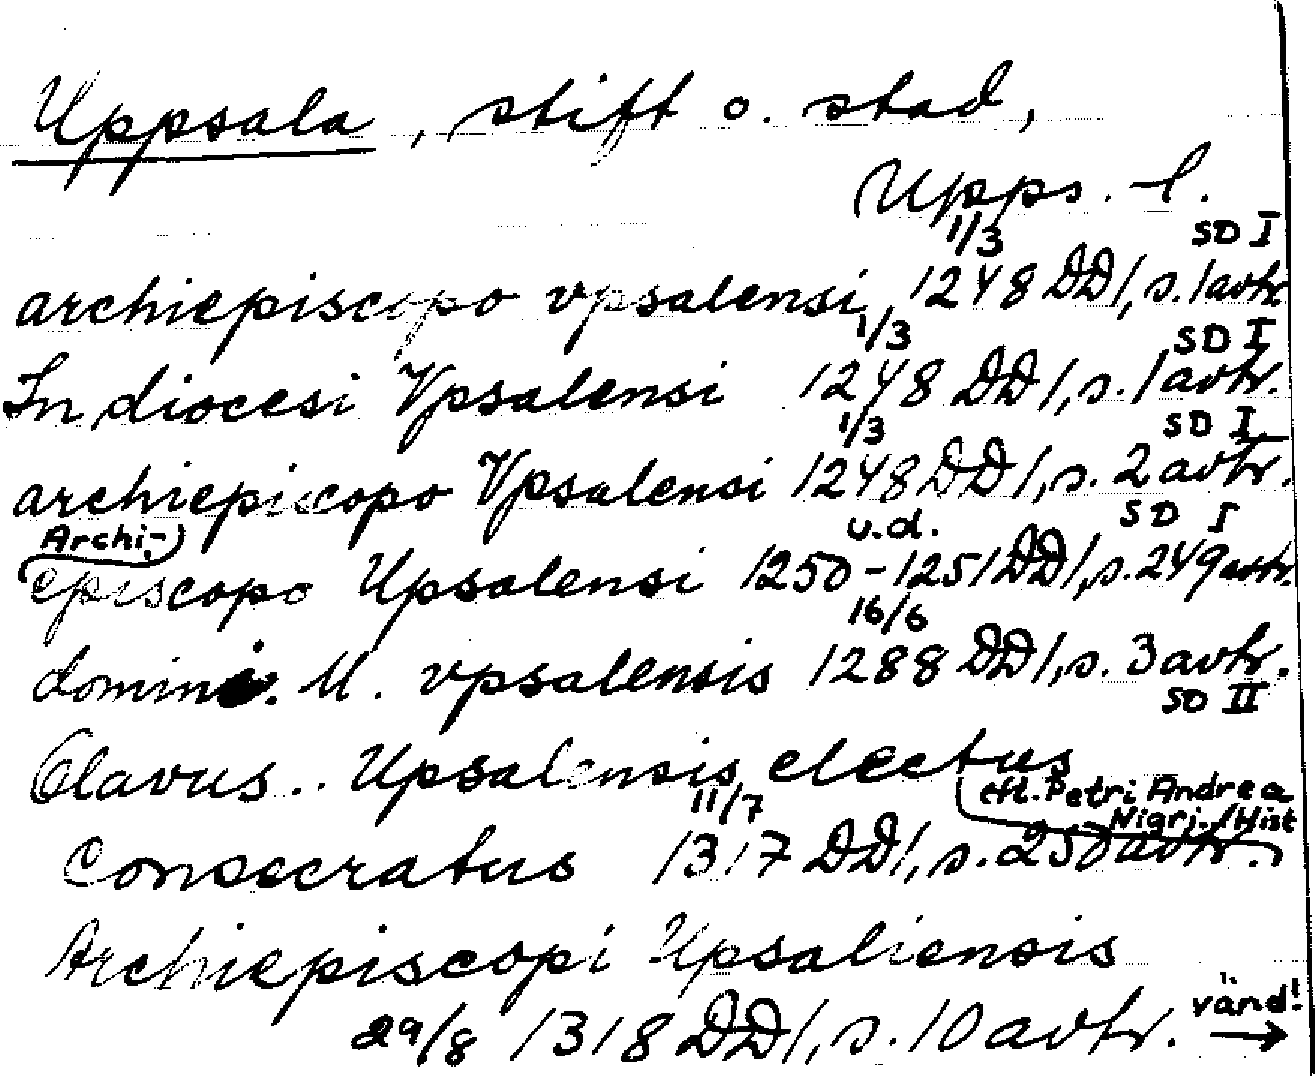 Uppsala, stift o. stad,
Upps. l.
1/3 SD I
archiepiscopo vpsalensi, 1248 DD1, s. 1 avtr
1/3 SD I
In diocesi Vpsalensi 1248 DD1, s. 1 avtr.
1/3 SD I
archiepiscopo Vpsalensi 1248 DD1, s. 2 avtr.
Archi-) u.d. SD I
episcopo Upsalensi 1250-1251 DD1, s. 249 avtr.
16/6
domini. M. vpsalensis 1288 DD1, s. 3 avtr.
SD II
Olavus.. Upsalensis electus
11/7 eft. Petri Andrea
Nigri-/Hist
Consecratus 1317 DD1, s. 250 avtr.
Archiepiscopi Upsaliensis
29/8 1318 DD1, s. 10 avtr. vänd! →